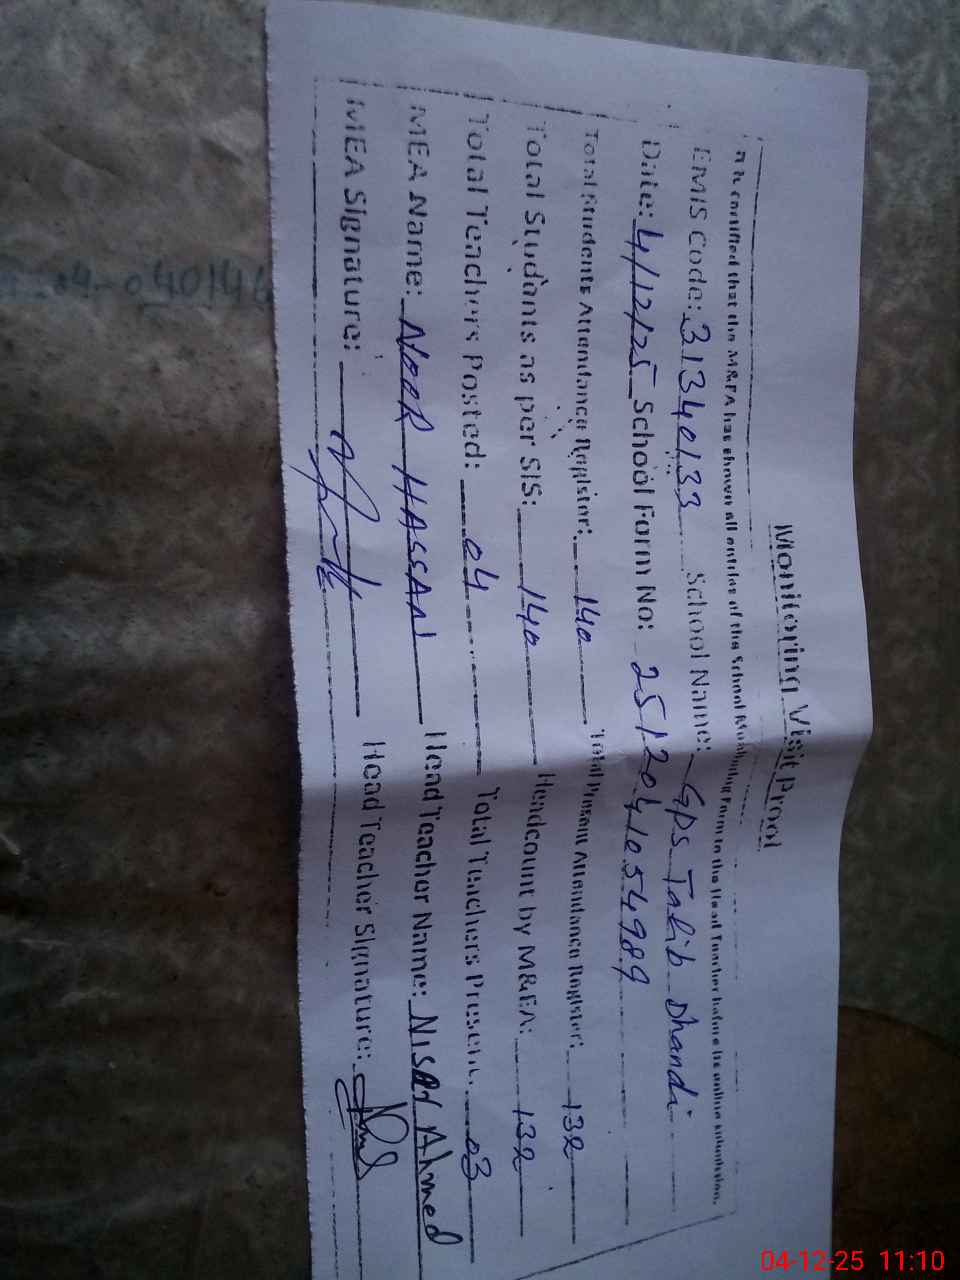 Monitoring Visit Proof
It is certified that the M&EA has shown all entries of the School Monitoring Form to the Head Teacher before its online submission.
EMIS Code: 31340133 School Name: GPS Talib Dhandi
Date: 4/12/25 School Form No: 2512041054989
Total Students Attendance Register: 140 Total Present Attendance Register: 132
Total Students as per SIS: 140 Headcount by M&EA: 132
Total Teachers Posted: 04 Total Teachers Present: 03
MEA Name: NOOR HASSAN Head Teacher Name: Nisar Ahmed
MEA Signature: Head Teacher Signature:
04-12-25 11:10